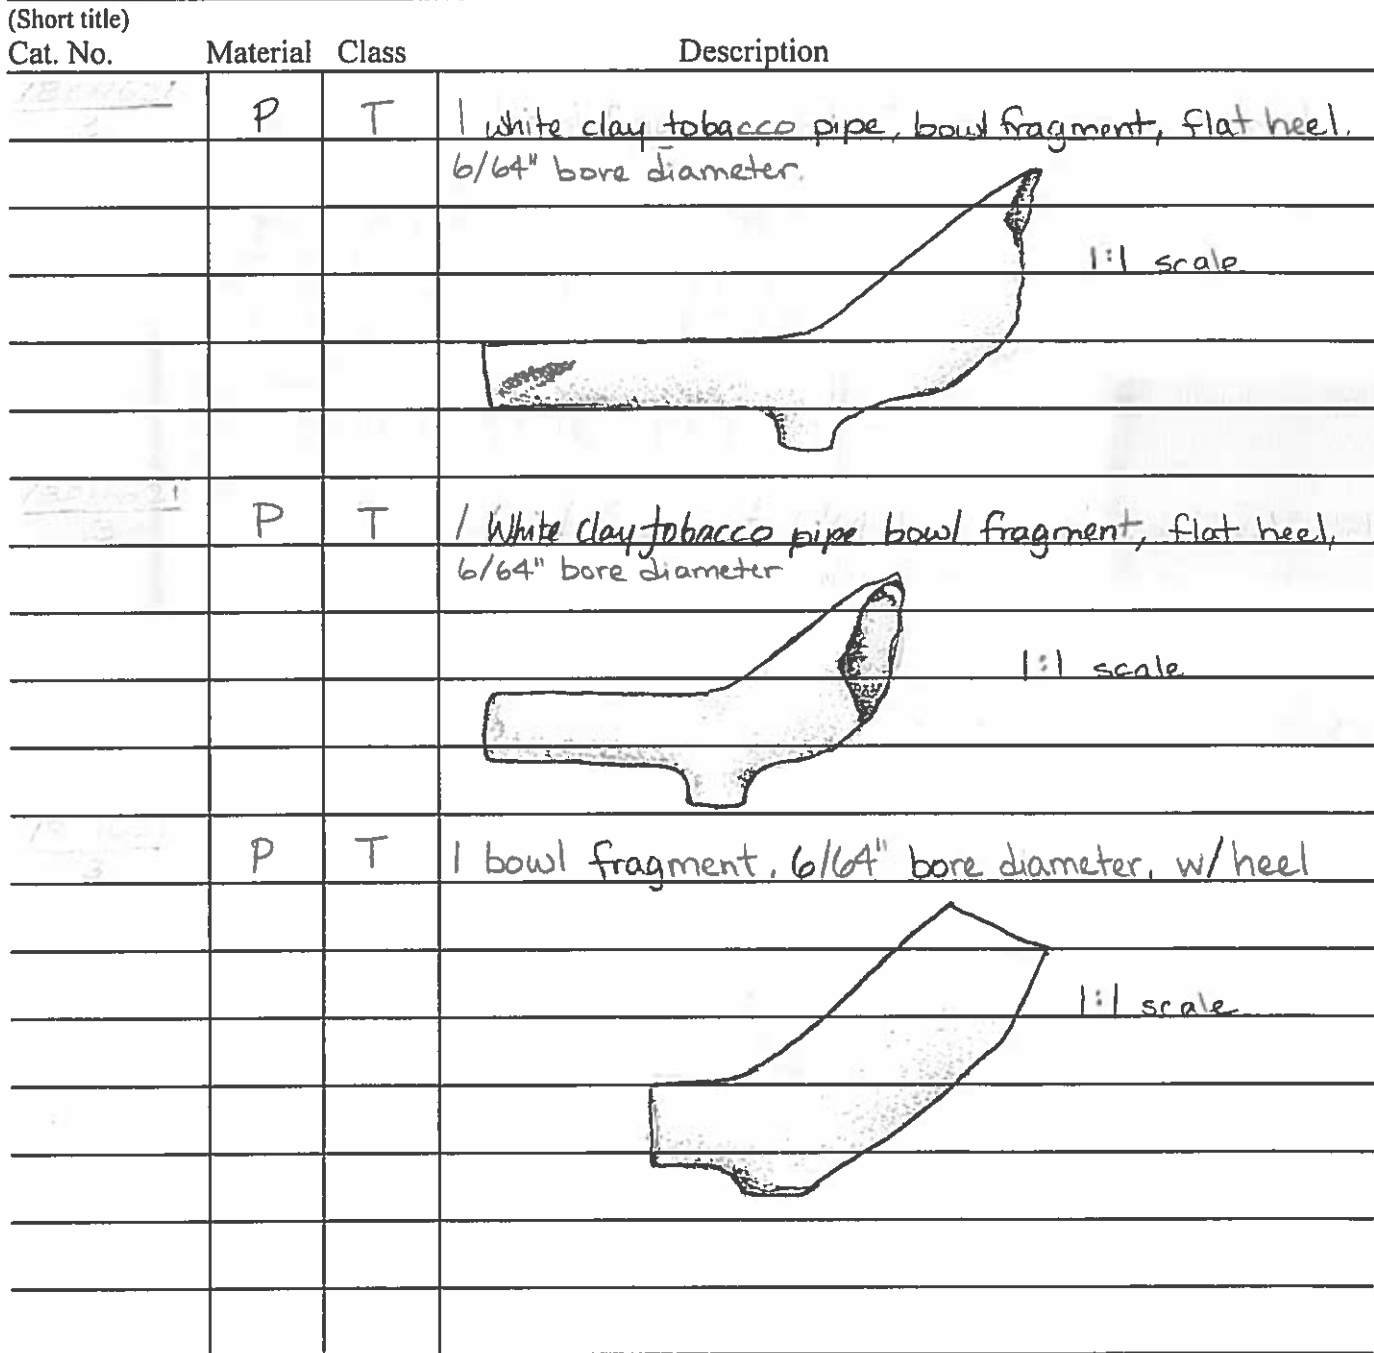 (Short title)
Cat. No. Material Class Description
P T 1 white clay tobacco pipe, bowl fragment, flat heel.
6/64" bore diameter.
1:1 scale
P T 1 White clay tobacco pipe bowl fragment, flat heel,
6/64" bore diameter
1:1 scale
3 P T 1 bowl fragment, 6/64" bore diameter, w/ heel
1:1 scale